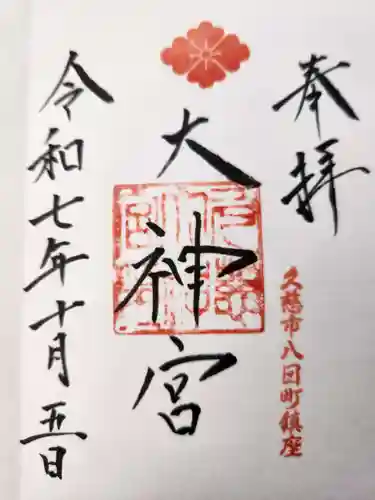 奉拝
久慈市八日町鎮座
大神宮
令和七年十月五日